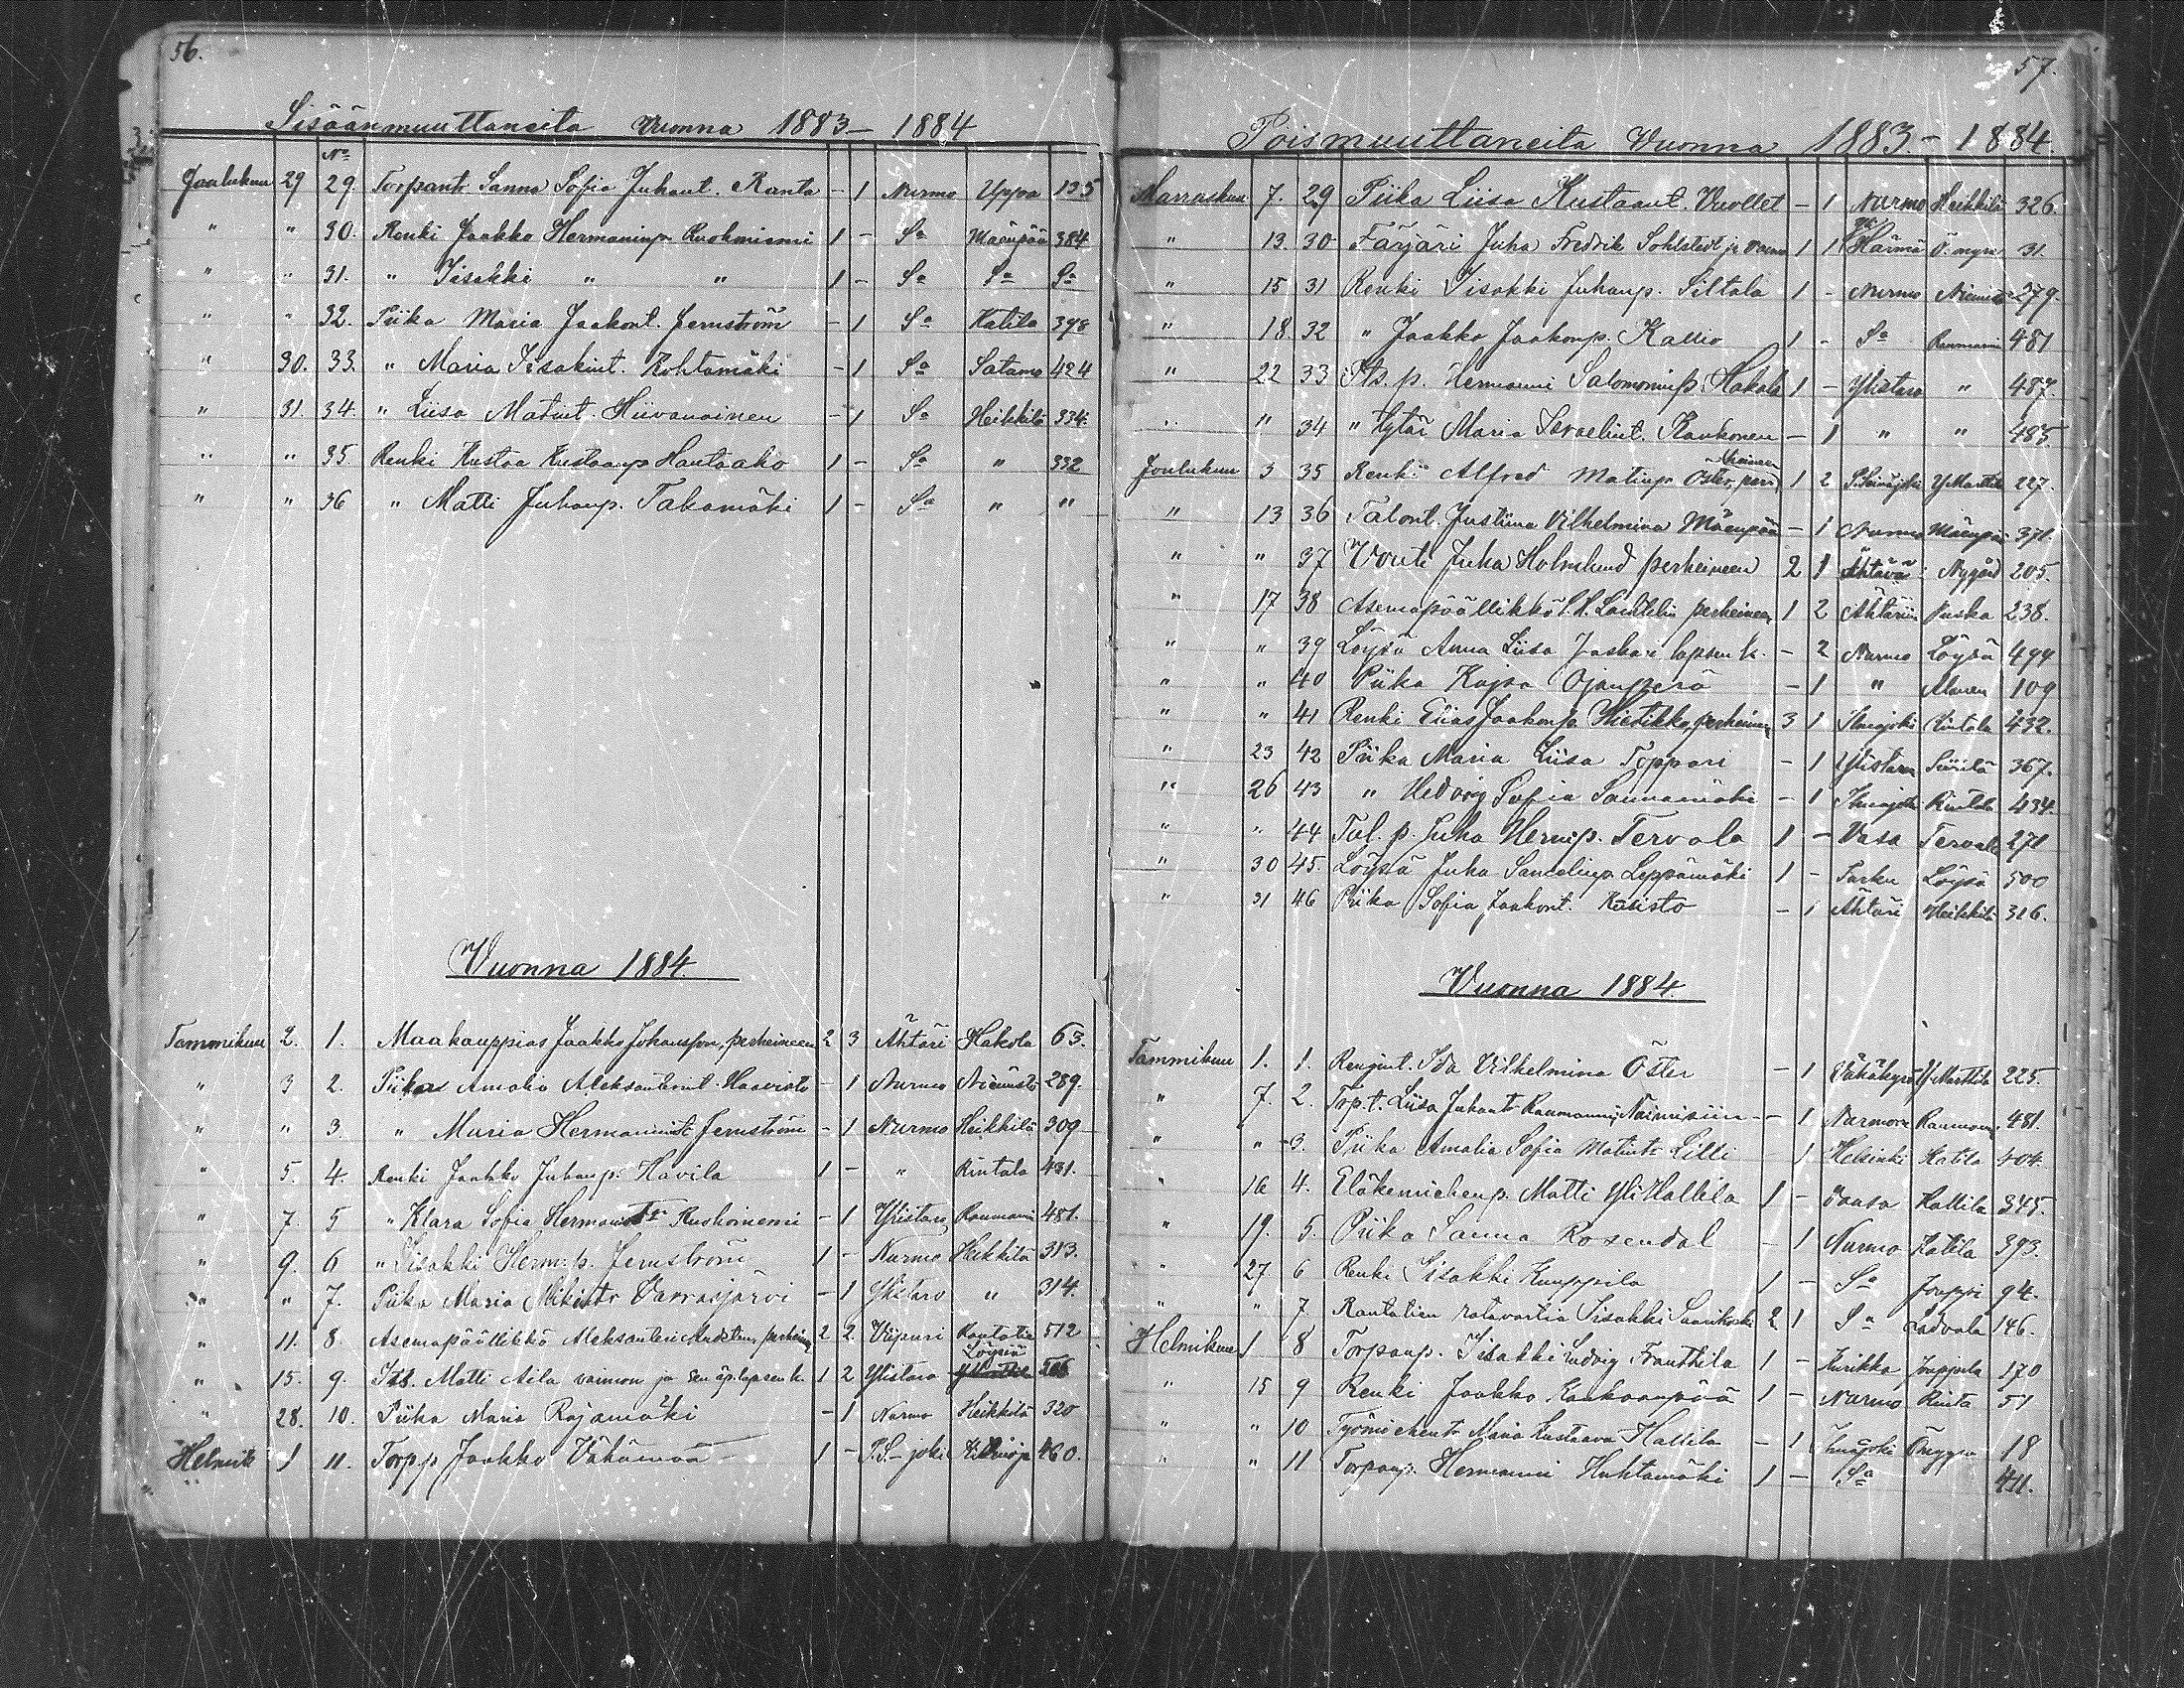 56.
Sisäänmuuttaneita Vuonna 1883 - 1884
No
Joulukuu 29 29. Torpantr Sanna Sofia Juhant. Ranta - 1 Nurmo Uppa 135
" " 30. Renki Jaakko Hermaninp. Ruohoniemi 1 - Sa Mäenpää 384
" " 31. " Iisakki " " 1 - Sa Sa Sa
" " 32. Piika Maria Jaakont. Jernström - 1 Sa Katila 398
" 30. 33. " Maria Iisakint. Kohtamäki - 1 Sa Satamo 424
" 31 34. " Liisa Matint. Hiivanainen - 1 Sa Heikkilä 334.
" " 35 Renki Kustaa Kustaanp Hautaaho 1 - Sa " 332
" " 36 " Matti Juhanp. Takamäki 1 - Sa " "
Vuonna 1884.
Tammikuu 2. 1. Maakauppias Jaakko Johansson, perheineen 2 3 Ähtäri Hakola 63.
" 3 2. Piika Amalia Aleksanterint. Haavisto - 1 Nurmo Niemistö 289.
" " 3. " Maria Hermannintr Jernström - 1 Nurmo Heikkilä 309
" 5. 4. Renki Jaakko Juhanp. Havila 1 - " Rintala 431.
" 7. 5 " Klara Sofia Hermanntr Ruohoniemi - 1 Ylistaro Raumanni 481.
" 9. 6 " Iisakki Herm:p. Jernström 1 - Nurmo Heikkilä 313.
" " 7. Piika Maria Mikintr Varrasjärvi - 1 Ylistaro " 314.
" 11. 8. Asemapäällikkö Aleksanteri perhein 2 2 Viipuri Rautatie 512
Löysiä
" 15. 9. Its. Matti Aila vaimon ja äp. lapsen k. 1 2 Ylistaro
" 28. 10. Piika Maria Rajamäki - 1 Nurmo Heikkilä 320
Helmik 1 11. Torpp Jaakko Vähämaa 1 - P.S-joki 460.
57.
Poismuuttaneita Vuonna 1883 - 1884.
Marraskuu 7. 29 Piika Liisa Kustaant. Vuollet - 1 Nurmo Heikkilä 326.
" 13. 30 Färjäri Juha Fredrik Sohlstedt ja vaimo 1 1 Härmä Ö. myra 31.
" 15 31 Renki Iisakki Juhanp. Siltala 1 - Nurmo Niemistö 279.
" 18. 32 " Jaakko Jaakonp. Kallio 1 - Sa Raumanni 481
" 22 33 Its. p. Hermanni Salomoninp. Hakala 1 - Ylistaro " 487.
" " 34 " tytär Maria Israelint. Kaukonen - 1 " " 485.
Joulukuu 3 35 Renki Alfred Matinp Öster, perh 1 2 P.Seinäjoki Y Marttila 227.
" 13 36 Talont. Justiina Vilhelmina Mäenpää - 1 Nurmo Mäenpää 371.
" " 37 Vouti Juha Holmlund perheineen 2 1 Ähtävä Nygård 205.
" 17 38 Asemapäällikkö perheineen 1 2 Ähtäriin Puska 238.
" " 39 Löysä Anna Liisa Jaskari lapsen k. - 2 Nurmo Löysä 499
" " 40 Piika Kajsa Ojanperä - 1 " Alanen 109
" " 41 Renki Elias Jaakonp. Hietikko, perheineen 3 1 Ilmajoki Rintala 432.
" 23 42 Piika Maria Liisa Toppari - 1 Ylistaro Siirilä 367.
" 26 43 " Hedvig Sofia Saunamäki - 1 Ilmajoki Rintala 434.
" " 44 Tal. p. Juha Hermp. Tervala 1 - Vasa Tervala 271
" 30 45. Löysä Juha Samelinp Leppämäki 1 - Turku Löysä 500
" 31 46 Piika Sofia Jaakont. Kuusisto - 1 Ähtäri Heikkilä 316.
Vuonna 1884.
Tammikuu 1. 1. Rengint. Ida Vilhelmina Öster - 1 Vähäkyrö Y Marttila 225.
" 7. 2. Torp.t. Liisa Juhantr Raumanni, Naimisiin - 1 Nurmoon Raumanni 481.
" " 3. Piika Amalia Sofia Matintr Lilli - 1 Helsinki Katila 404.
" 16 4. Eläkemiehen p. Matti Yli Hallila 1 - Vaasa Hallila 345.
" 19. 5. Piika Sanna Rosendal - 1 Nurmo Katila 393.
" 27 6 Renki Iisakki Kuoppala 1 - Sa Jouppi 94.
" " 7. Rautatien ratavartia Iisakki Saarikoski 2 1 Sa Ladvala 146.
Helmikuu 1 8 Torpanp. Iisakki Ludvig Franttila 1 - Kurikka Jouppila 170
" 15 9 Renki Jaakko Kankaanpää 1 - Nurmo Rinta 51
" " 10 Työmiehentr Maria Kustaava Hallila - 1 Ilmajoki 18
" " 11 Torpanp. Hermanni Huhtamäki 1 - Sa 411.